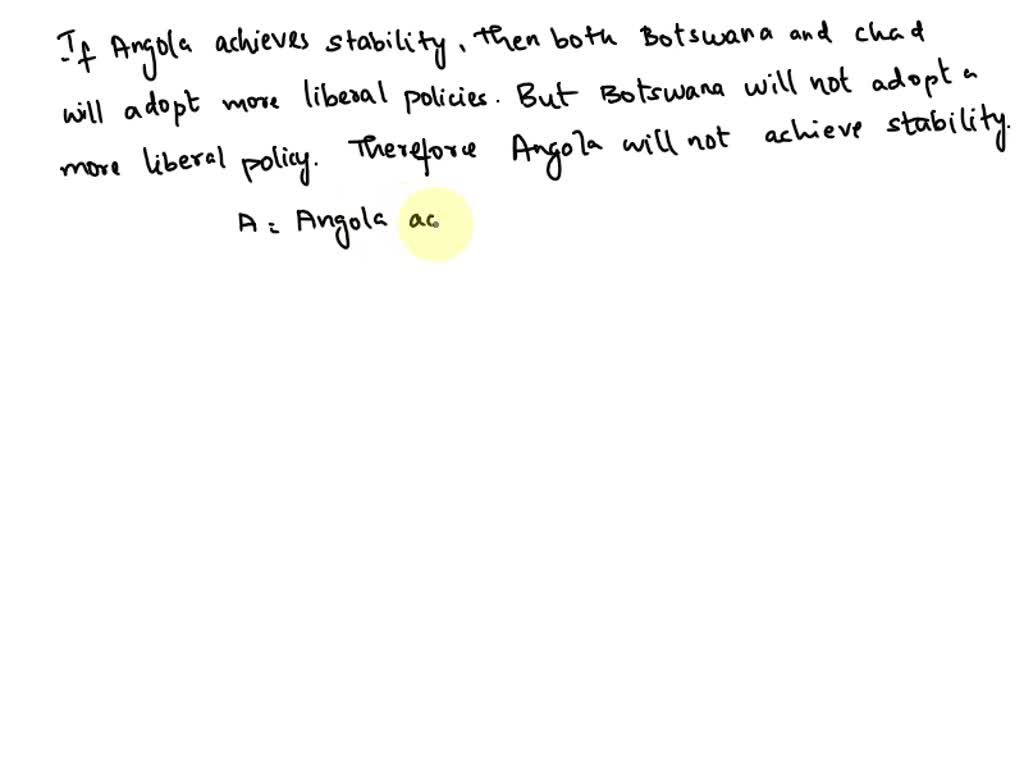 If Angola achieves stability, then both Botswana and chad
will adopt more liberal policies. But Botswana will not adopt a
more liberal policy. Therefore Angola will not achieve stability.
A = Angola ac